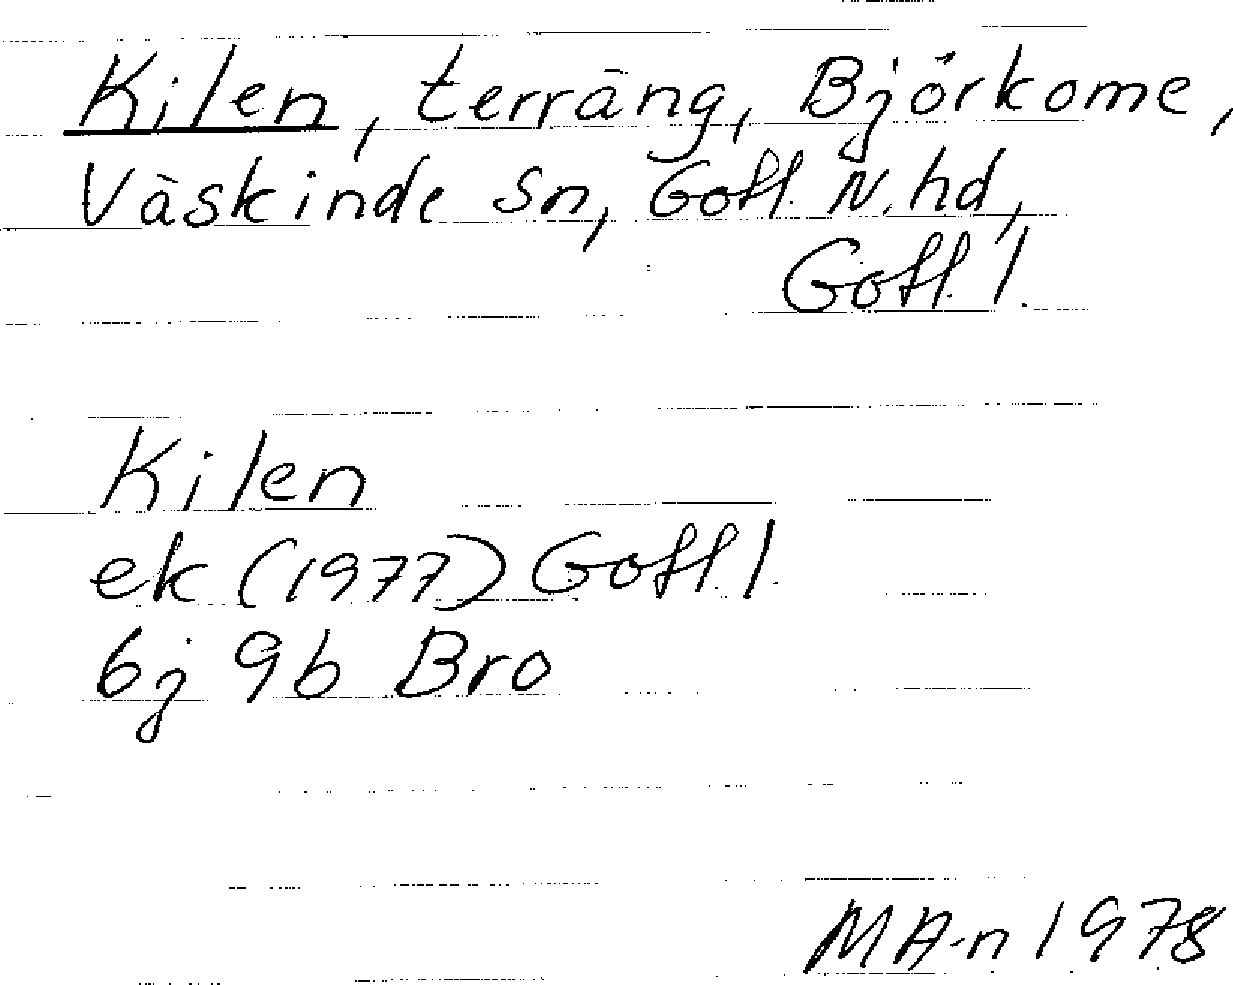 Kilen, terräng, Björkome,
Väskinde sn, Gotl. N. hd,
Gotl. l.
Kilen
ek (1977) Gotl. l.
6j 9b Bro
MA-n 1978